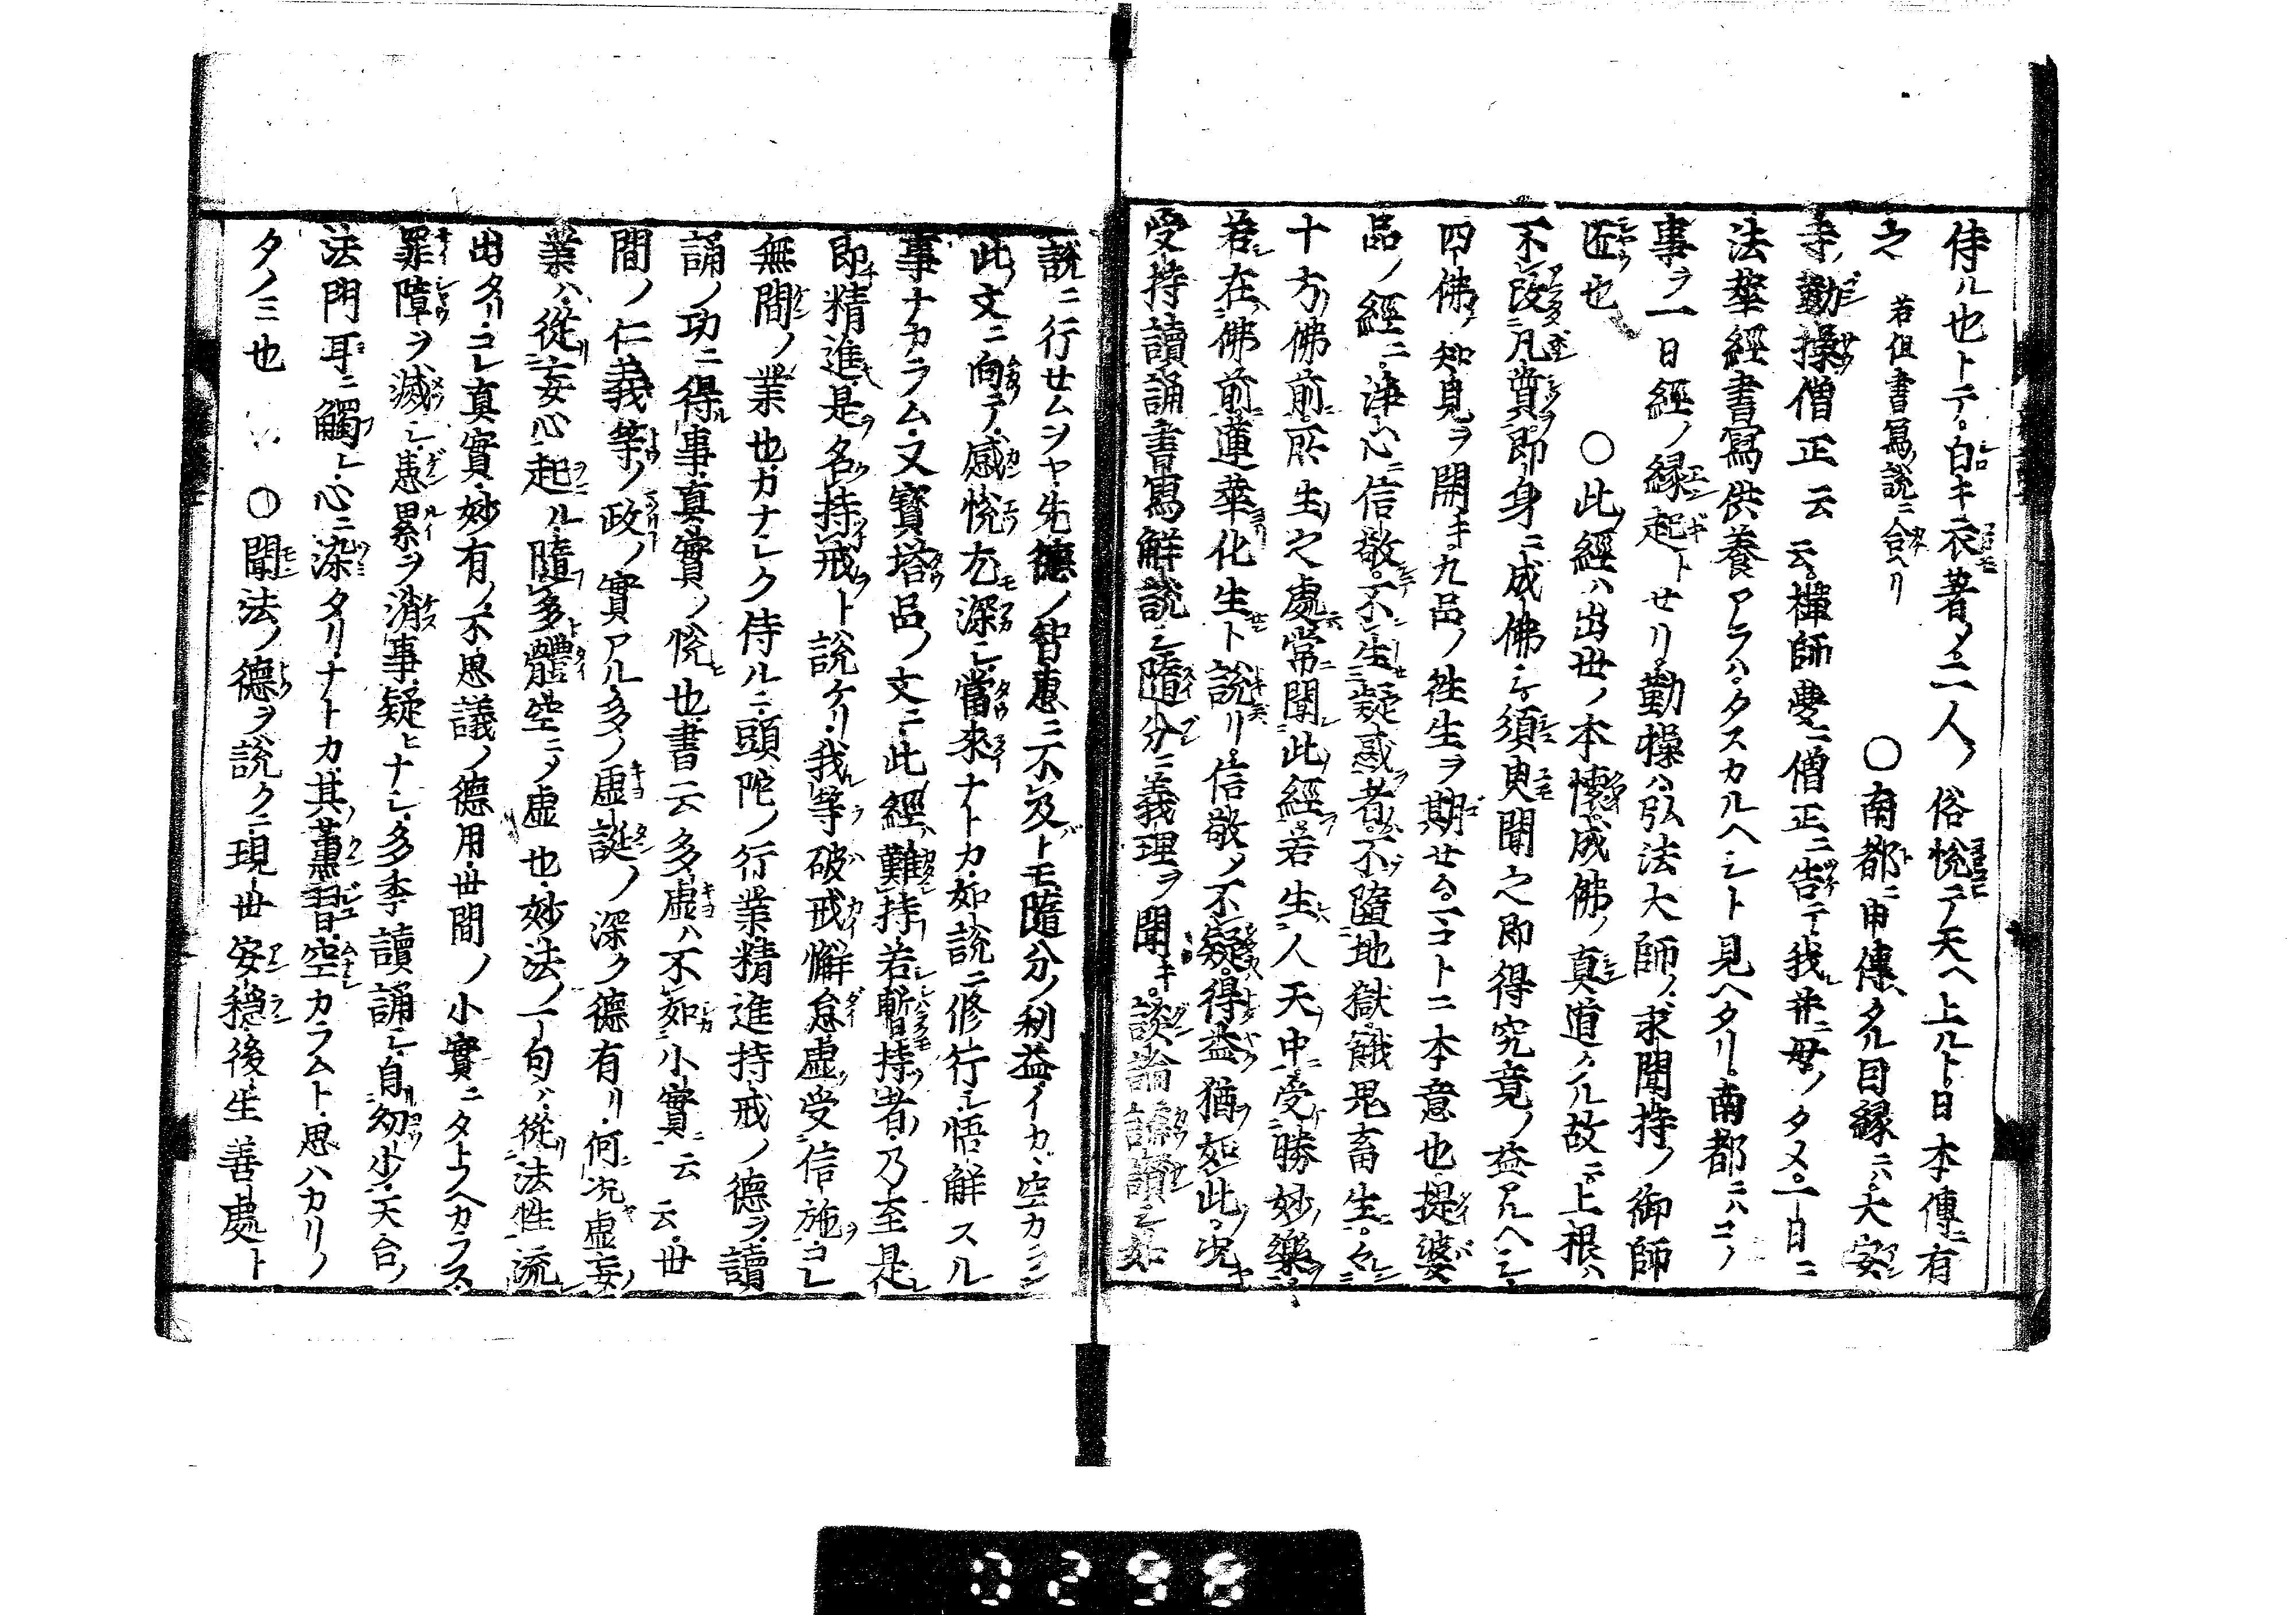 侍ル也トテ。白キ衣著メ。二人ノ俗悦テ天ヘ上ルト。日本傳ニ有
之 若但書寫ノ説ニ合ヘリ 〇南都ニ申傳タル因縁ニハ。大安
寺ノ勤操僧正云云。禪師夢ニ僧正ニ告テ。我并ニ母ノタメ。一日ニ
法華經書寫供養アラハ。タスカルヘシト見ヘタリ。南都ニハコノ
事ヲ一日經ノ縁起トセリ。勤操ハ弘法大師ノ求聞持ノ御師
匠也 〇此經ハ出世ノ本懷。成佛ノ真道ナル故ニ。上根ハ
不改凡質。即身ニ成佛シ。須臾聞之即得究竟ノ益アルヘシ。
四佛ノ知見ヲ開キ。九品ノ往生ヲ期セムコト本意也。提婆
品ノ經ニ。淨心ニ信敬。不生疑惑者。不墮地獄。餓鬼畜生。
十方佛前。所生之處。常聞此經。若生人天中。受勝妙樂。
若在佛前。蓮華化生ト説リ。信敬メ不疑。得益猶如此。況
受持讀誦書寫解説シ。隨分ニ義理ヲ聞キ。談論講讃シ。如
説ニ行セムヲヤ。先德ノ智惠ニ不及トモ。隨分ノ利益イカヽ空カラン
此文ニ向テ。感悦尤深シ。當來ナトカ。如説ニ修行シ。悟解スル
事ナカラム。又寶塔品ノ文ニ。此經難持。若暫持者。乃至是
即精進。是名持戒ト説ケリ。我等破戒懈怠虛受信施。コレ
無間ノ業也。カナシク侍ルニ。頭陀ノ行業精進持戒ノ德ヲ。讀
誦ノ功ニ得事。真實ノ悦也。書云多虛ハ不如小實ニ云云。世
間ノ仁義等ノ政ノ實アル。多ノ虛誕ノ深ク德有リ。何況虛妄ノ
業ハ。從妄心起ル。隨多體空ニメ虛也。妙法ノ一句ハ。從法性流
出タリ。コレ真實妙有ノ不思議ノ德用。世間ノ小實ニタトフヘカラス。
罪障ヲ滅シ。愚累ヲ消事疑ヒナシ。多季讀誦シ。自幼少。天台ノ
法門耳ニ觸レ。心ニ染タリ。ナトカ其ノ薰習空カラムト。思ハカリノ
タノミ也 〇聞法ノ德ヲ説クニ。現世安穩後生善處ト